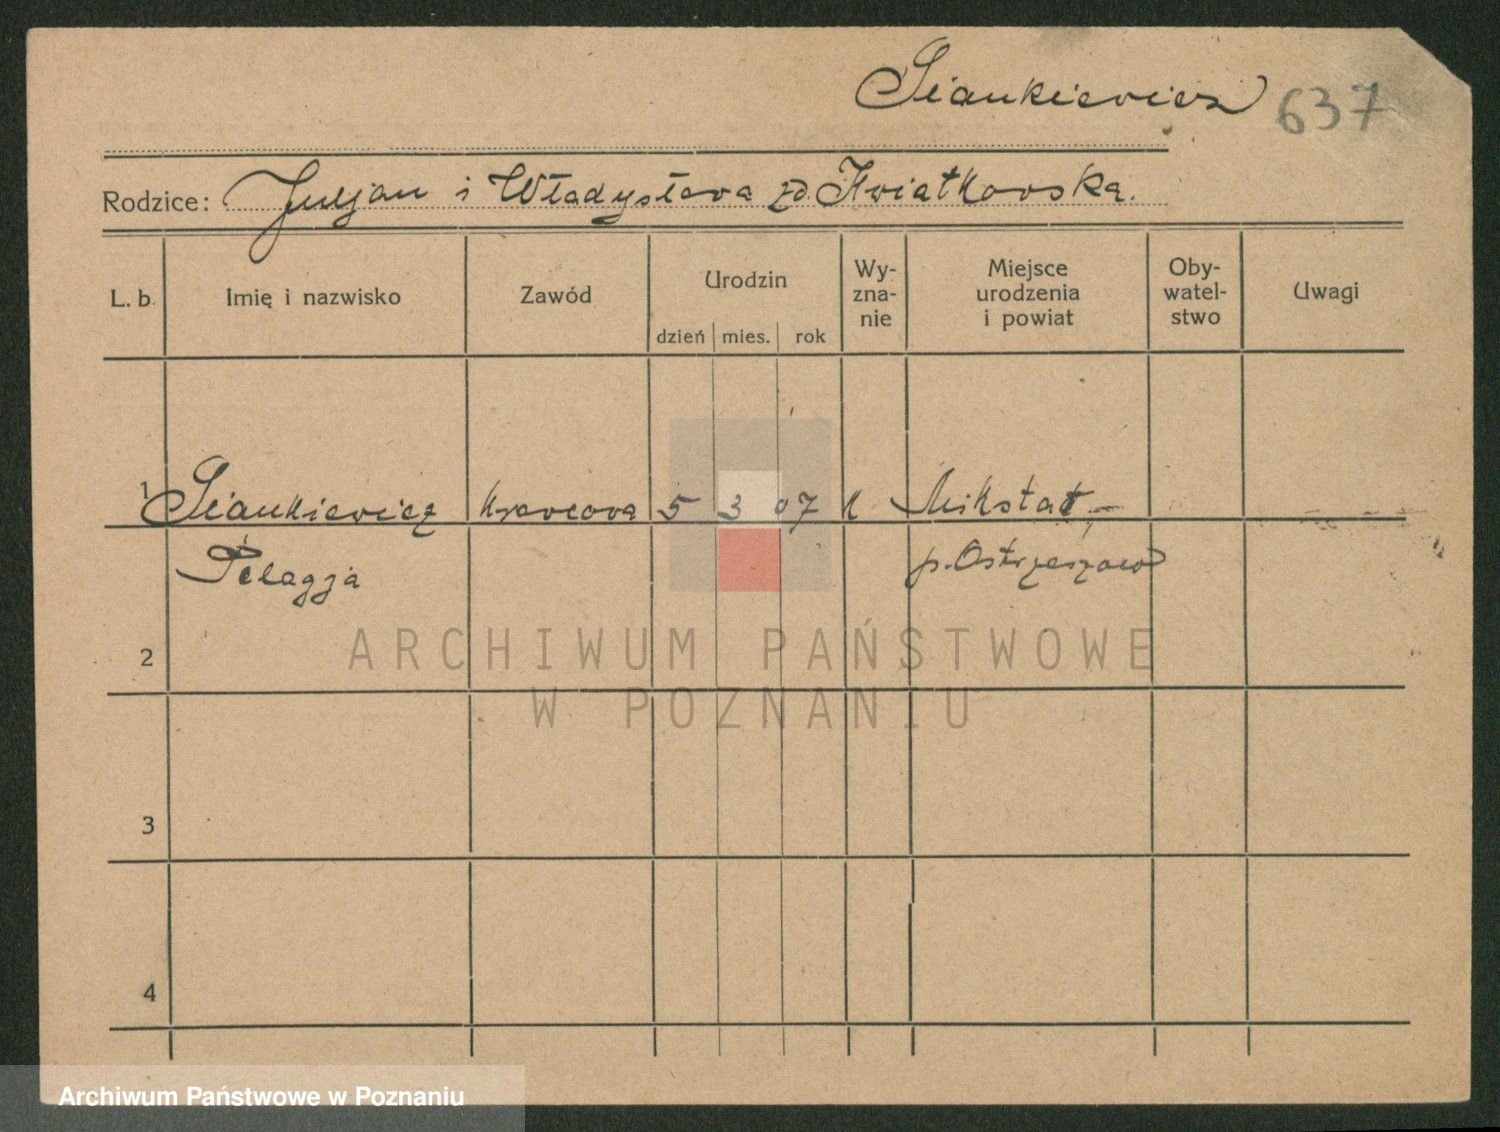 Siankiewicz 637
Rodzice: Juljan i Władysława zd. Kwiatkowska.
L. b. Imię i nazwisko Zawód Urodzin dzień mies. rok Wy-zna-nie Miejsce urodzenia i powiat Oby-watel-stwo Uwagi
1 Siankiewicz krawcowa 5 3 07 k Mikstat
Pelagja p. Ostrzeszów
2
3
4
ARCHIWUM PAŃSTWOWE
W POZNANIU
Archiwum Państwowe w Poznaniu